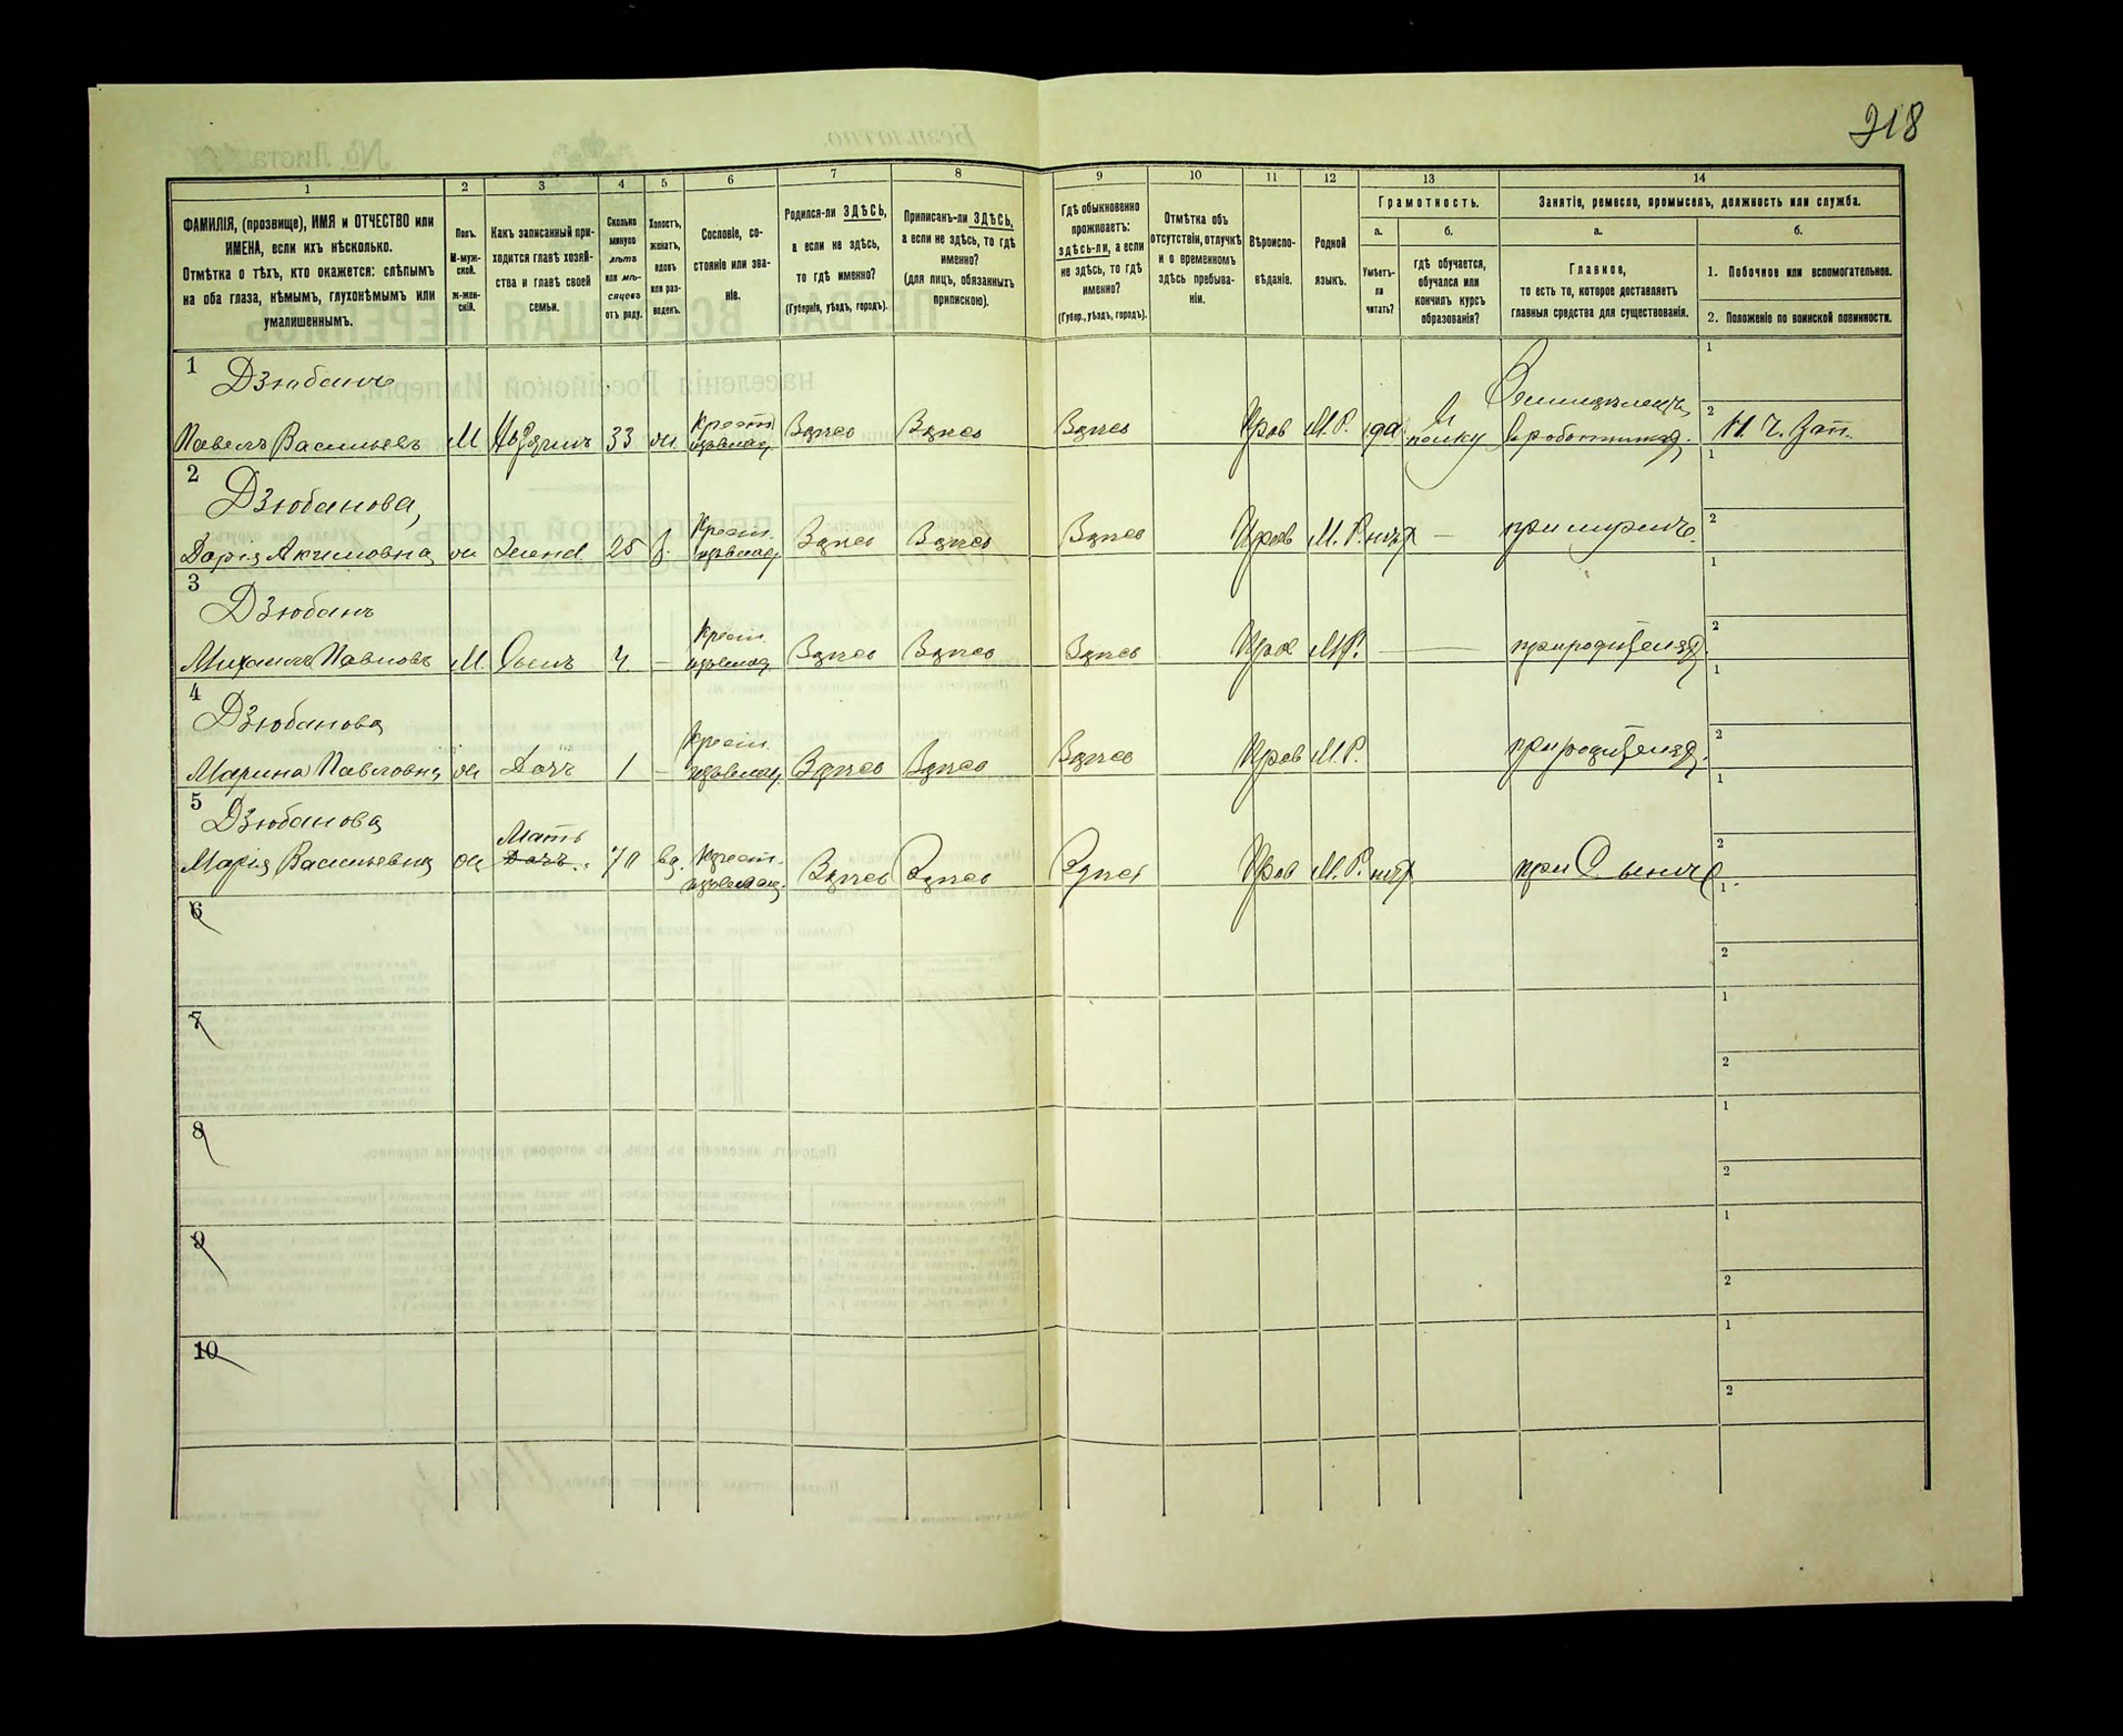 218
1 2 3 4 5 6 7 8 9 10 11 12 13 14
ФАМИЛІЯ, (прозвище), ИМЯ и ОТЧЕСТВО или
ИМЕНА, если ихъ нѣсколько.
Отмѣтка о тѣхъ, кто окажется: слѣпымъ
на оба глаза, нѣмымъ, глухонѣмымъ или
умалишеннымъ.
Полъ.
М-муж-
ской.
ж-жен-
скій.
Какъ записанный при-
ходится главѣ хозяй-
ства и главѣ своей
семьи.
Сколько
минуло
лѣтъ
или мѣ-
сяцевъ
отъ роду.
Холостъ,
женатъ,
вдовъ
или раз-
веденъ.
Сословіе, со-
стояніе или зва-
ніе.
Родился-ли ЗДѢСЬ,
а если не здѣсь,
то гдѣ именно?
(Губернія, уѣздъ, городъ).
Приписанъ-ли ЗДѢСЬ,
а если не здѣсь, то гдѣ
именно?
(для лицъ, обязанныхъ
припискою).
Гдѣ обыкновенно
проживаетъ:
здѣсь-ли, а если
не здѣсь, то гдѣ
именно?
(Губер., уѣздъ, городъ).
Отмѣтка объ
отсутствіи, отлучкѣ
и о временномъ
здѣсь пребыва-
ніи.
Вѣроиспо-
вѣданіе.
Родной
языкъ.
Грамотность.
а.
Умѣетъ-
ли
читать?
б.
Гдѣ обучается,
обучался или
кончилъ курсъ
образованія?
Занятіе, ремесло, промыселъ, должность или служба.
а.
Главное,
то есть то, которое доставляетъ
главныя средства для существованія.
б.
1. Побочное или вспомогательное.
2. Положеніе по воинской повинности.
1 Дзюбанъ
Павелъ Васильевъ М 33 Крест. Здѣсь Здѣсь Здѣсь Прав М.Р. да
2 Дзюбанова,
Дарія Акимовна Жена 25 Крест. Здѣсь Здѣсь Здѣсь Прав М.Р. нѣтъ —
3 Дзюбанъ
Михаилъ Павловъ М. Сынъ 4 — Крест. Здѣсь Здѣсь Здѣсь Прав М.Р. —
4 Дзюбанова
Марина Павловна Дочь 1 — Крест. Здѣсь Здѣсь Здѣсь Прав М.Р.
5 Дзюбанова
Мать
Марія Васильевна Дочь 70 вд. Крест. Здѣсь Здѣсь Здѣсь Прав М.Р. нѣтъ при Сынѣ
6
7
8
9
10